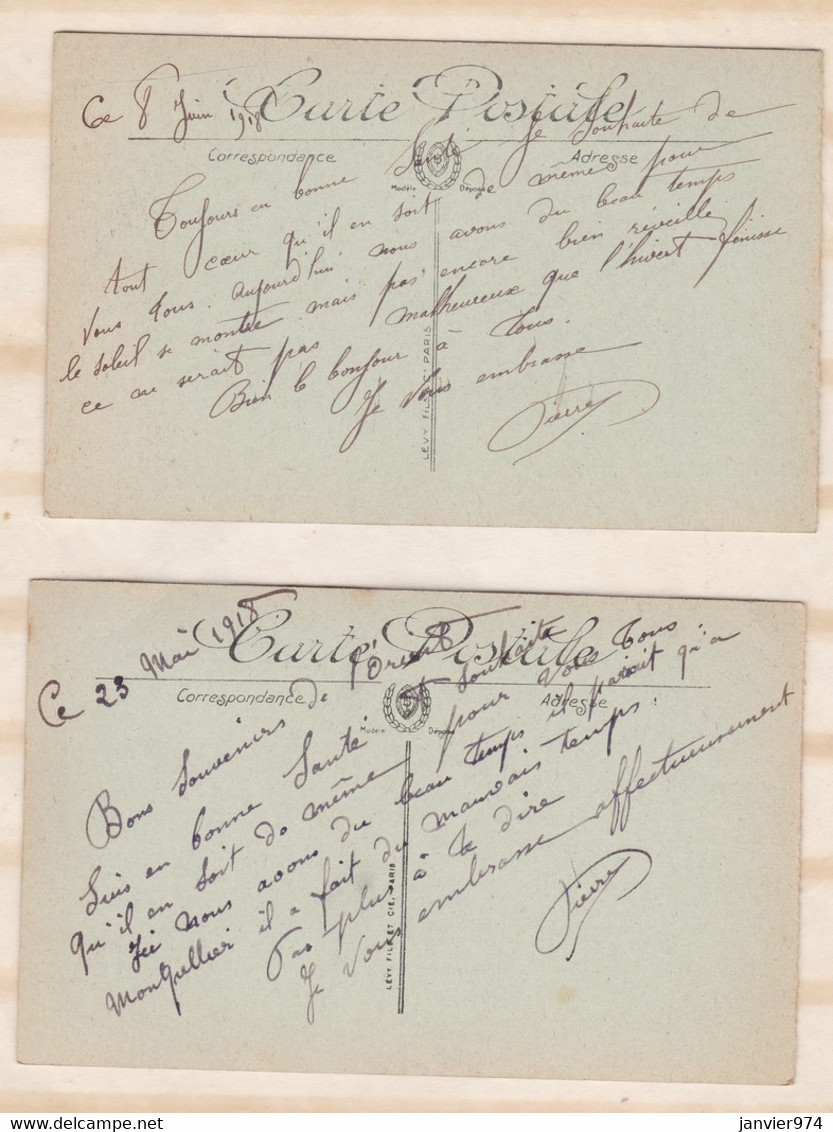 Ce 8 Juin 1918
Carte Postale
Correspondance
Adresse
Modèle Déposé
Toujours en bonne Santé Je souhaite de
tout cœur qu'il en soit de même pour
Vous Tous. Aujourd'hui nous avons du beau temps
le soleil se montre mais pas encore bien réveillé
ce ne serait pas malheureux que l'hivert finisse
Bien le bonjour à Tous.
Je Vous embrasse
Pierre
LÉVY FILS ET Cie PARIS
Ce 23 Mai 1918
Carte Postale
Correspondance
Adresse
Modèle Déposé
Bons Souvenirs de l'Orient
Suis en bonne Santé et Souhaite
qu'il en soit de même pour Vous Tous
Ici nous avons du beau temps il parait qu'a
Montpellier il a fait du mauvais temps.
Pas plus à te dire
Je Vous embrasse affectueusement
Pierre
LÉVY FILS ET CIE, PARIS
delcampe.net
janvier974